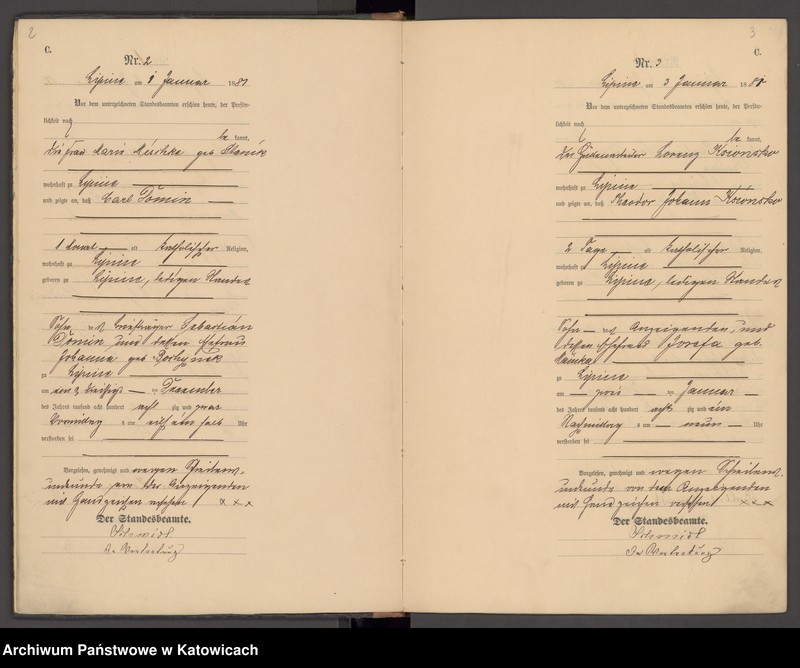 2
C.
Nr. 2
Lipine am 1 Januar 1881
Vor dem unterzeichneten Standesbeamten erschien heute, der Persön-
lichkeit nach
be kannt,
die Frau Marie geb
wohnhaft zu Lipine
und zeigte an, daß Carl Tomin
1 Monat alt katholischer Religion,
wohnhaft zu Lipine
geboren zu Lipine, ledigen Standes
Sohn des Sebastian
Tomin und dessen Ehefrau
Johanna geb
zu Lipine
am December
des Jahres tausend acht hundert acht zig und
Vormittag s um ein halb Uhr
verstorben sei
Vorgelesen, genehmigt und wegen Schreibens-
unkunde von der Anzeigenden
mit Handzeichen versehen xxx
Der Standesbeamte.
Schmidt
In Vertretung
3
C.
Nr. 3
Lipine am 3 Januar 1881
Vor dem unterzeichneten Standesbeamten erschien heute, der Persön-
lichkeit nach
be kannt,
der Hüttenarbeiter Lorenz
wohnhaft zu Lipine
und zeigte an, daß Theodor Johann
2 Tage alt katholischer Religion,
wohnhaft zu Lipine
geboren zu Lipine, ledigen Standes
Sohn des Anzeigenden, und
dessen Ehefrau Josefa geb.
zu Lipine
am zwei Januar
des Jahres tausend acht hundert acht zig und ein
Nachmittag s um neun Uhr
verstorben sei
Vorgelesen, genehmigt und wegen Schreibens-
unkunde von dem Anzeigenden
mit Handzeichen versehen xxx
Der Standesbeamte.
Schmidt
In Vertretung
Archiwum Państwowe w Katowicach